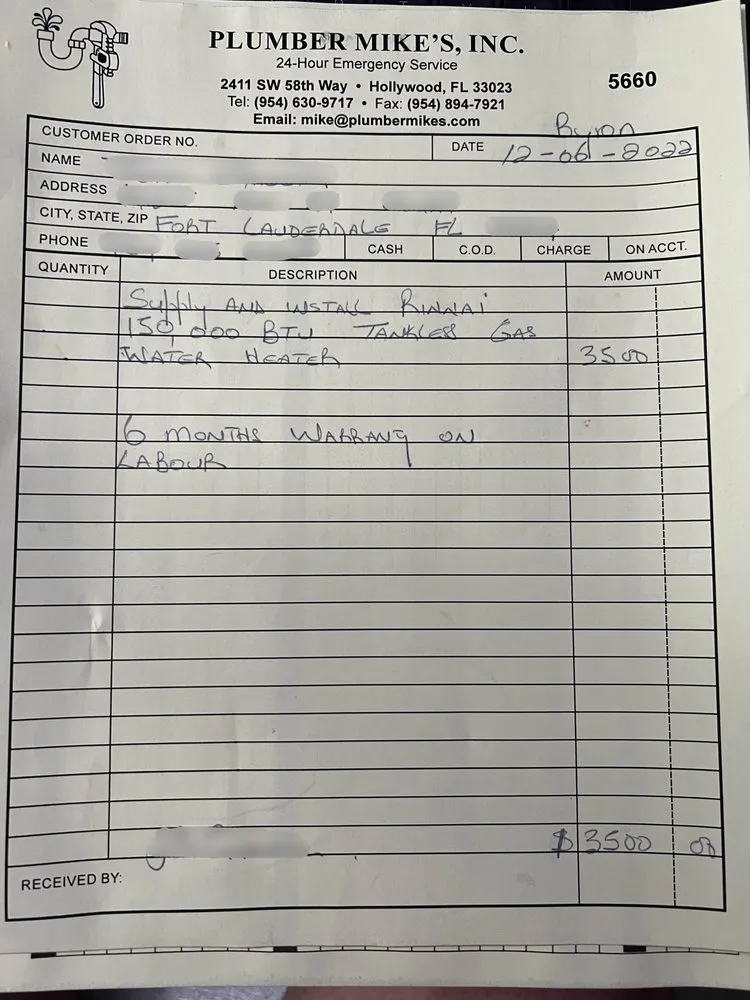 PLUMBER MIKE'S, INC.
24-Hour Emergency Service
2411 SW 58th Way • Hollywood, FL 33023
Tel: (954) 630-9717 • Fax: (954) 894-7921
Email: mike@plumbermikes.com
5660
Byron
CUSTOMER ORDER NO.
DATE 12-06-2022
NAME
ADDRESS
CITY, STATE, ZIP FORT LAUDERDALE FL
PHONE CASH C.O.D. CHARGE ON ACCT.
QUANTITY DESCRIPTION AMOUNT
Supply AND INSTALL RINNAI
150,000 BTU TANKLESS GAS
WATER HEATER 3500
6 MONTHS WARRANY ON
LABOUR
$3500 00
RECEIVED BY: